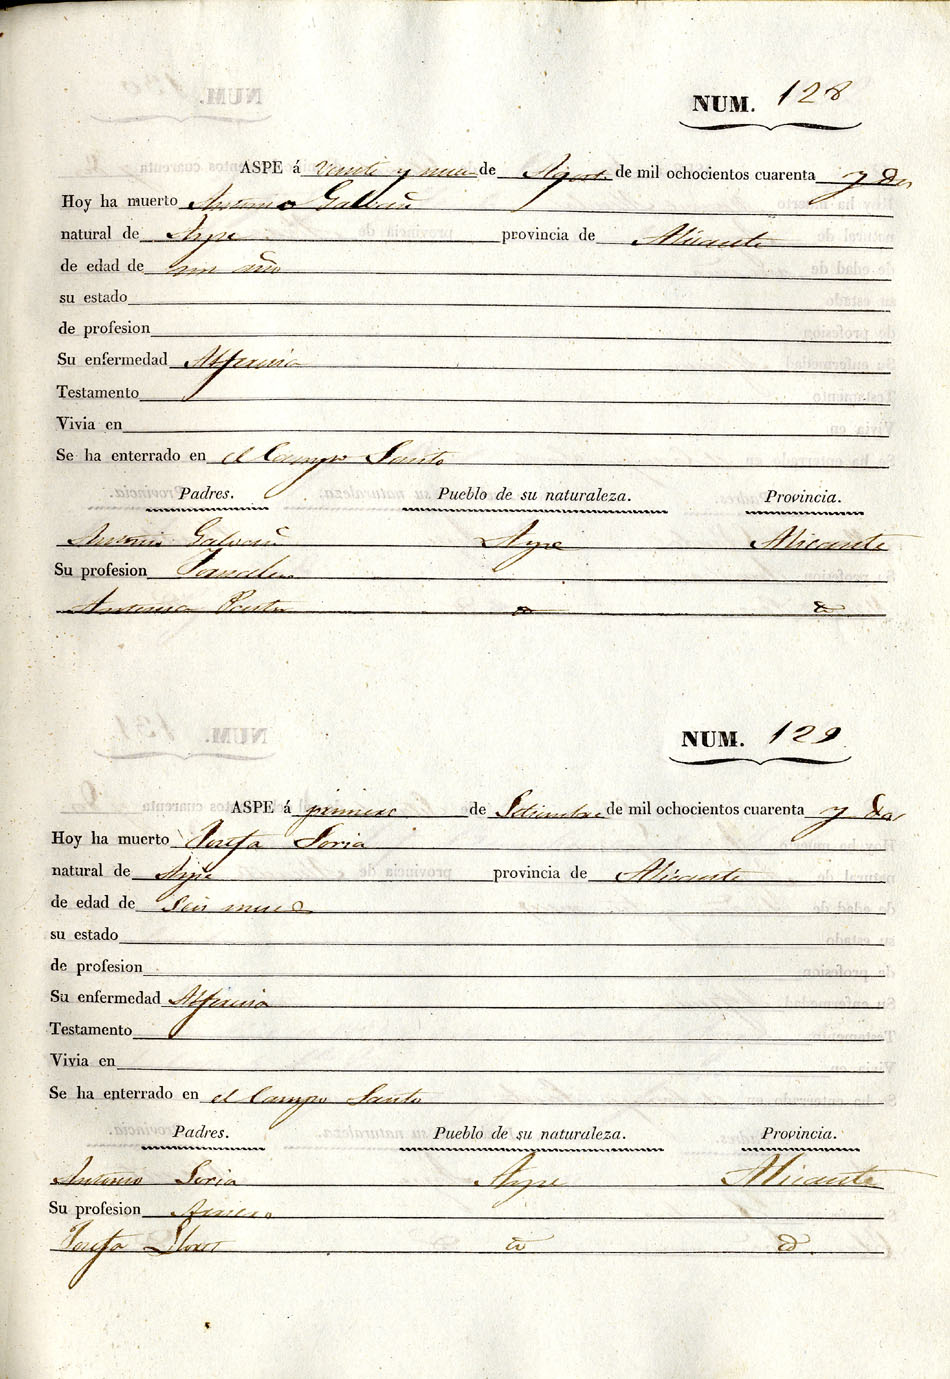 NUM. 128
ASPE á veinte y nueve de Agosto de mil ochocientos cuarenta y dos
Hoy ha muerto Antonio Galvañ
natural de Aspe provincia de Alicante
de edad de un año
su estado
de profesion
Su enfermedad Alferecia
Testamento
Vivia en
Se ha enterrado en el Campo Santo
Padres. Pueblo de su naturaleza. Provincia.
Antonio Galvañ Aspe Alicante
Su profesion Jornalero
Antonia
NUM. 129
ASPE á primero de Setiembre de mil ochocientos cuarenta y dos
Hoy ha muerto Josefa Soria
natural de Aspe provincia de Alicante
de edad de seis meses
su estado
de profesion
Su enfermedad Alferecia
Testamento
Vivia en
Se ha enterrado en el Campo Santo
Padres. Pueblo de su naturaleza. Provincia.
Antonio Soria Aspe Alicante
Su profesion Arriero
Josefa